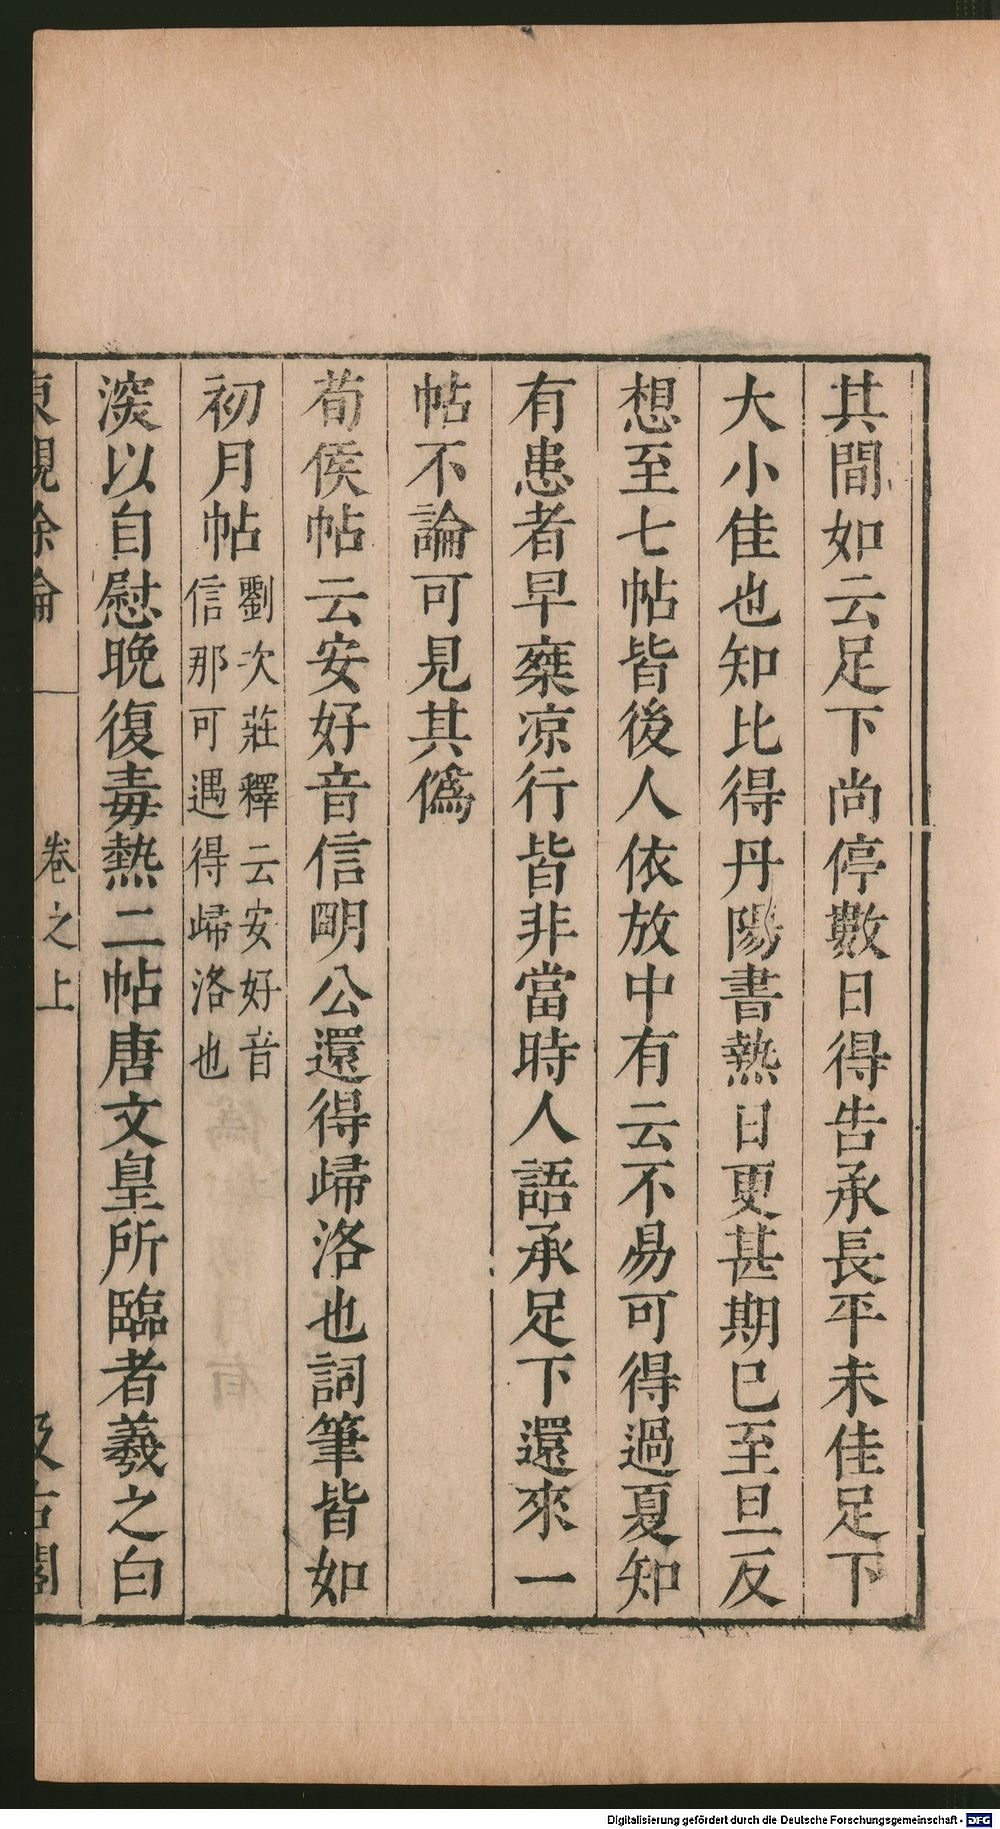 其間如云足下尚停數日得告承長平未佳足下
大小佳也知比得丹陽書熱日更甚期已至旦反
想至七帖皆後人依放中有云不易可得過夏知
有患者早燕凉行皆非當時人語承足下還來一
帖不論可見其僞
荀侯帖云安好音信明公還得歸洛也詞筆皆如
初月帖劉次莊釋云安好音信那可遇得歸洛也
深以自慰晚復毒熱二帖唐文皇所臨者羲之白
東觀餘論 卷之上 汲古閣
Digitalisierung gefördert durch die Deutsche Forschungsgemeinschaft - DFG